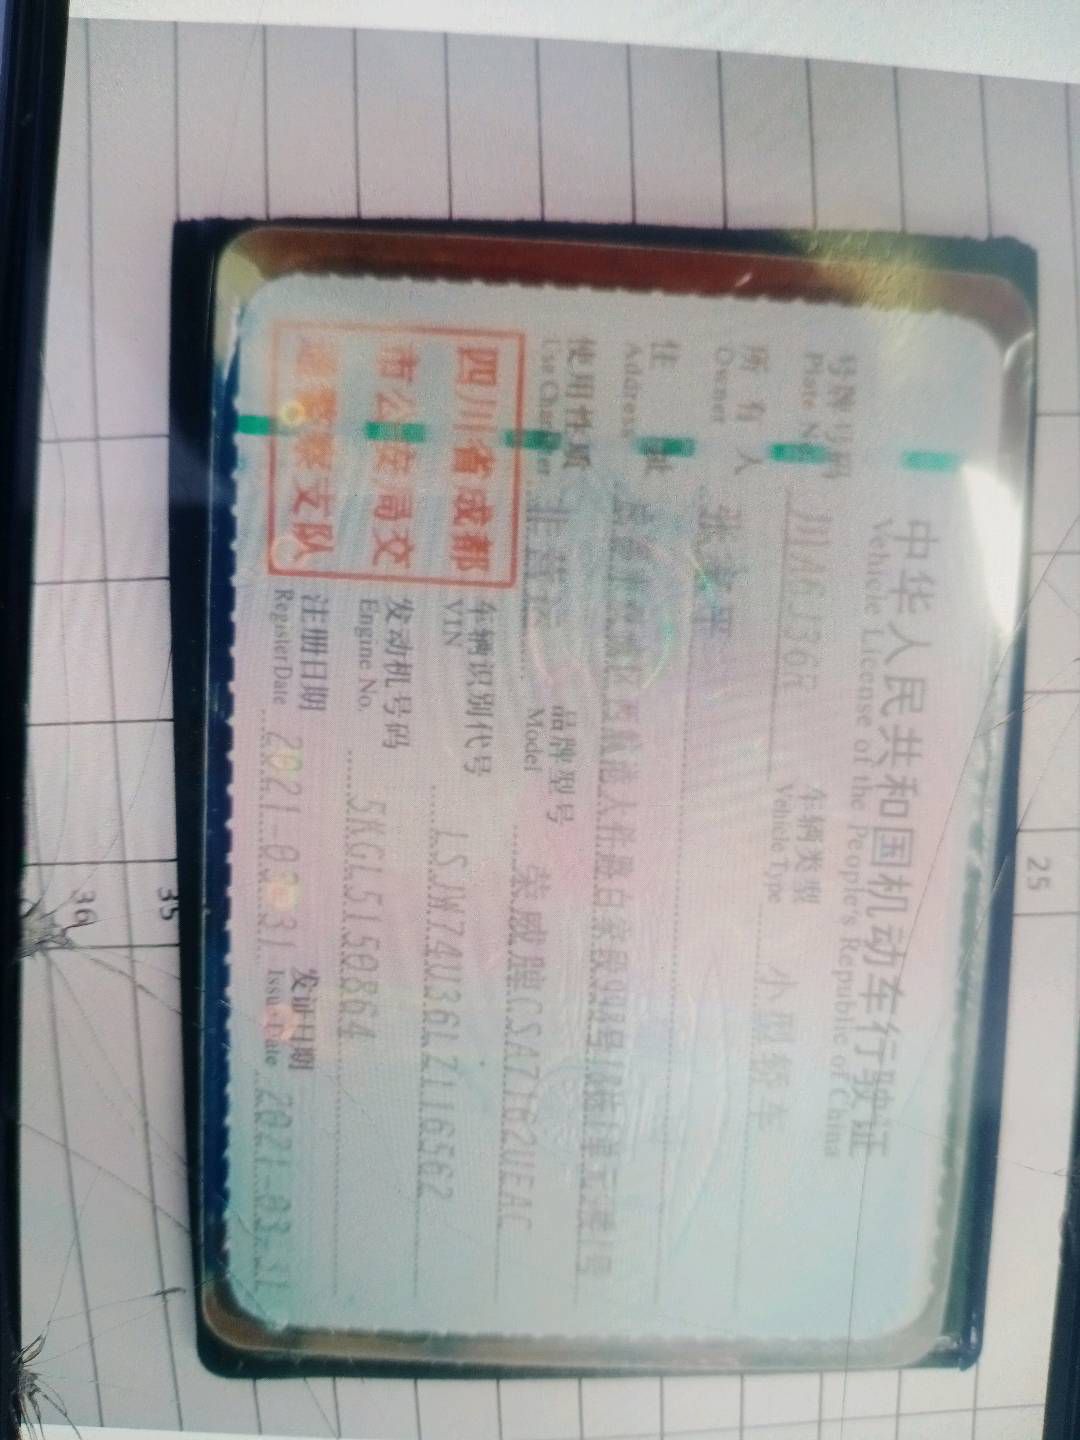 中华人民共和国机动车行驶证
Vehicle License of the People's Republic of China
号牌号码
Plate No.
车辆类型 小型轿车
Vehicle Type
所有人 张
Owner
住址
Address
使用性质 非营运
Use Character
品牌型号 荣威牌CSA7162UEAC
Model
四川省成都
市公安局交
通警察支队
车辆识别代号 LSJW74U36LZ116562
VIN
发动机号码 5KGL5150864
Engine No.
注册日期 2021-03-31
Register Date
发证日期 2021-03-31
Issue Date
25
35
36